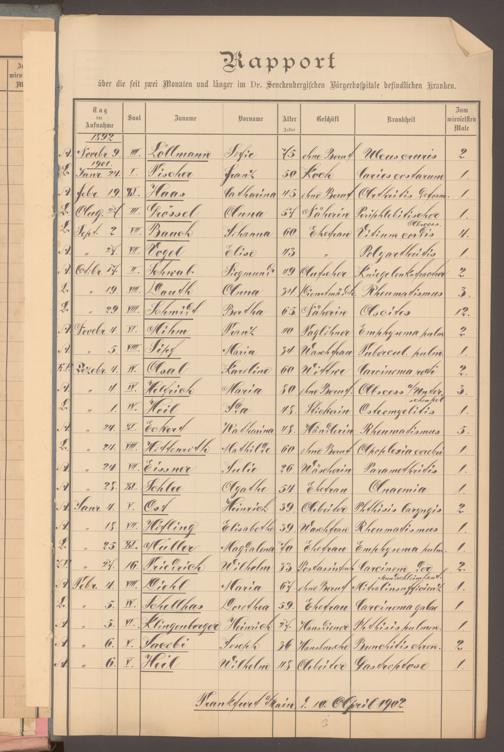 Rapport
über die seit zwei Monaten und länger im Dr. Senckenbergischen Bürgerhospitale befindlichen Kranken.
Tag der Aufnahme Saal Zuname Vorname Alter Jahre Geschäft Krankheit Zum wievielten Male
1892
A. Novbr 9 III. Löllmann Sofie 75 ohne Beruf Ulcus cruris 2
1901
L. Janr 24 I. Fischer Franz 50 Koch Caries costarum 1.
A. Febr 19 Haas Catharina 45 ohne Beruf Arthritis deform. 1.
L. Aug. II. Grössel Anna 57 Näherin 1.
L. Sept. 2 VII. Bauch Johanna 60 Ehefrau Vitium cordis 4.
A. " 27 VII. Vogel Elise 43 " Polyarthritis 1.
A. Octbr 17 II. Schwab Sigmund 49 2.
L. " 19 VIII. Lauth Anna 34 Dienstmädch. Rheumatismus 3.
L. " 29 VIII. Schmidt Bertha 65 Näherin Ascites 12.
A. Novbr 4 VI. Böhm Franz Taglöhner Emphysema pulm 2
A. " 5 VIII. Maria 34 Waschfrau Tubercul. pulm. 1.
Dezbr 4 IV. Karoline 60 Wittwe Carcinoma recti 2.
A. " 4 IV. Helfrich Maria 80 ohne Beruf Abscess 3.
L. " 1 IV. Heil Ida 18. Stickerin Osteomyelitis 1.
A. " 24 VI. Eckert Katharina 48 Händlerin Rheumatismus 5.
L. " 24 VIII. Hottenroth Mathilde 60 ohne Beruf Apoplexia cerebri 1.
A. " 24 VII. Eissner Julie 26 Wäscherin Parametritis 1.
A. " 28 Agathe 54 Ehefrau Anaemia 1.
A. Janr 4 V. Ost Heinrich 39 Arbeiter Phthisis laryngis 2
A. " 18 VII. Höfling Elisabethe 59 Waschfrau Rheumatismus 1.
L. " 25 Müller Magdalena 70 Ehefrau Emphysema pulm. 1.
" 27 16 Friderich Wilhelm 33 Postassistent Carcinom. 2.
A. Febr. 4 VIII. Diehl Maria 67 ohne Beruf 1.
L. " 5 IV. Schellhas Dorothea 59 Ehefrau Carcinoma 1.
A. " 5. VI. Klingenberger Heinrich 27 Hausdiener Phthisis pulmon. 1.
A. " 6. V. Jacobi Joseph 36 Hausbursche Bronchitis chron. 2
A. " 6. V. Heil Wilhelm 48 Arbeiter Gastroptose 1.
Frankfurt a/Main, d. 10. April 1902